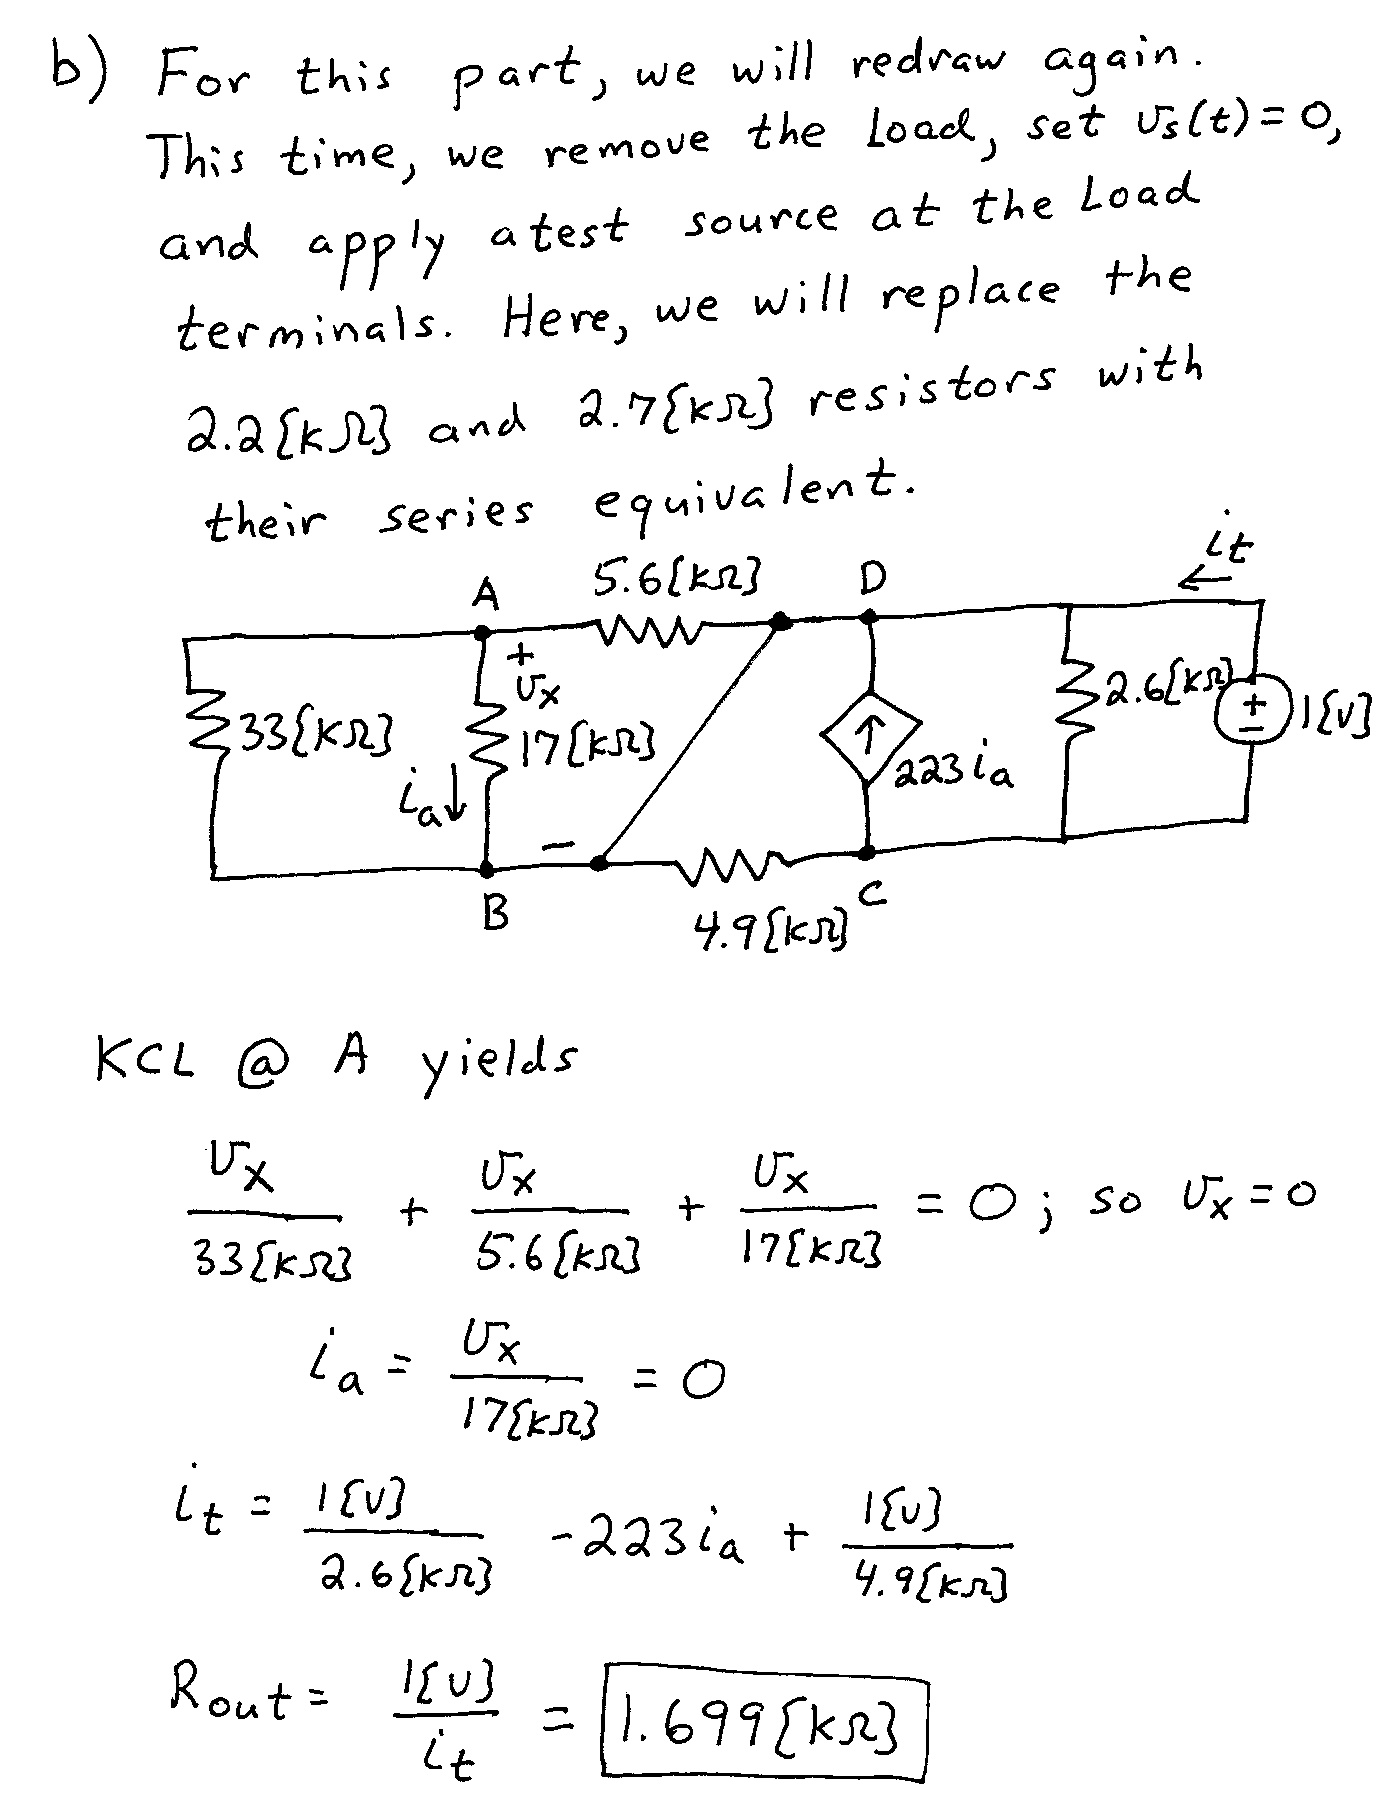 b) For this part, we will redraw again.
This time, we remove the Load, set vs(t)=0,
and apply a test source at the Load
terminals. Here, we will replace the
2.2[kΩ] and 2.7[kΩ] resistors with
their series equivalent.
it
A 5.6[kΩ] D
+
vx
33[kΩ] 17[kΩ] 2.6[kΩ] + 1[v]
−
ia 223 ia
−
B 4.9[kΩ] C
KCL @ A yields
vx/33[kΩ] + vx/5.6[kΩ] + vx/17[kΩ] = 0; so vx=0
ia = vx/17[kΩ] = 0
it = 1[v]/2.6[kΩ] -223ia + 1[v]/4.9[kΩ]
Rout = 1[v]/it = 1.699[kΩ]